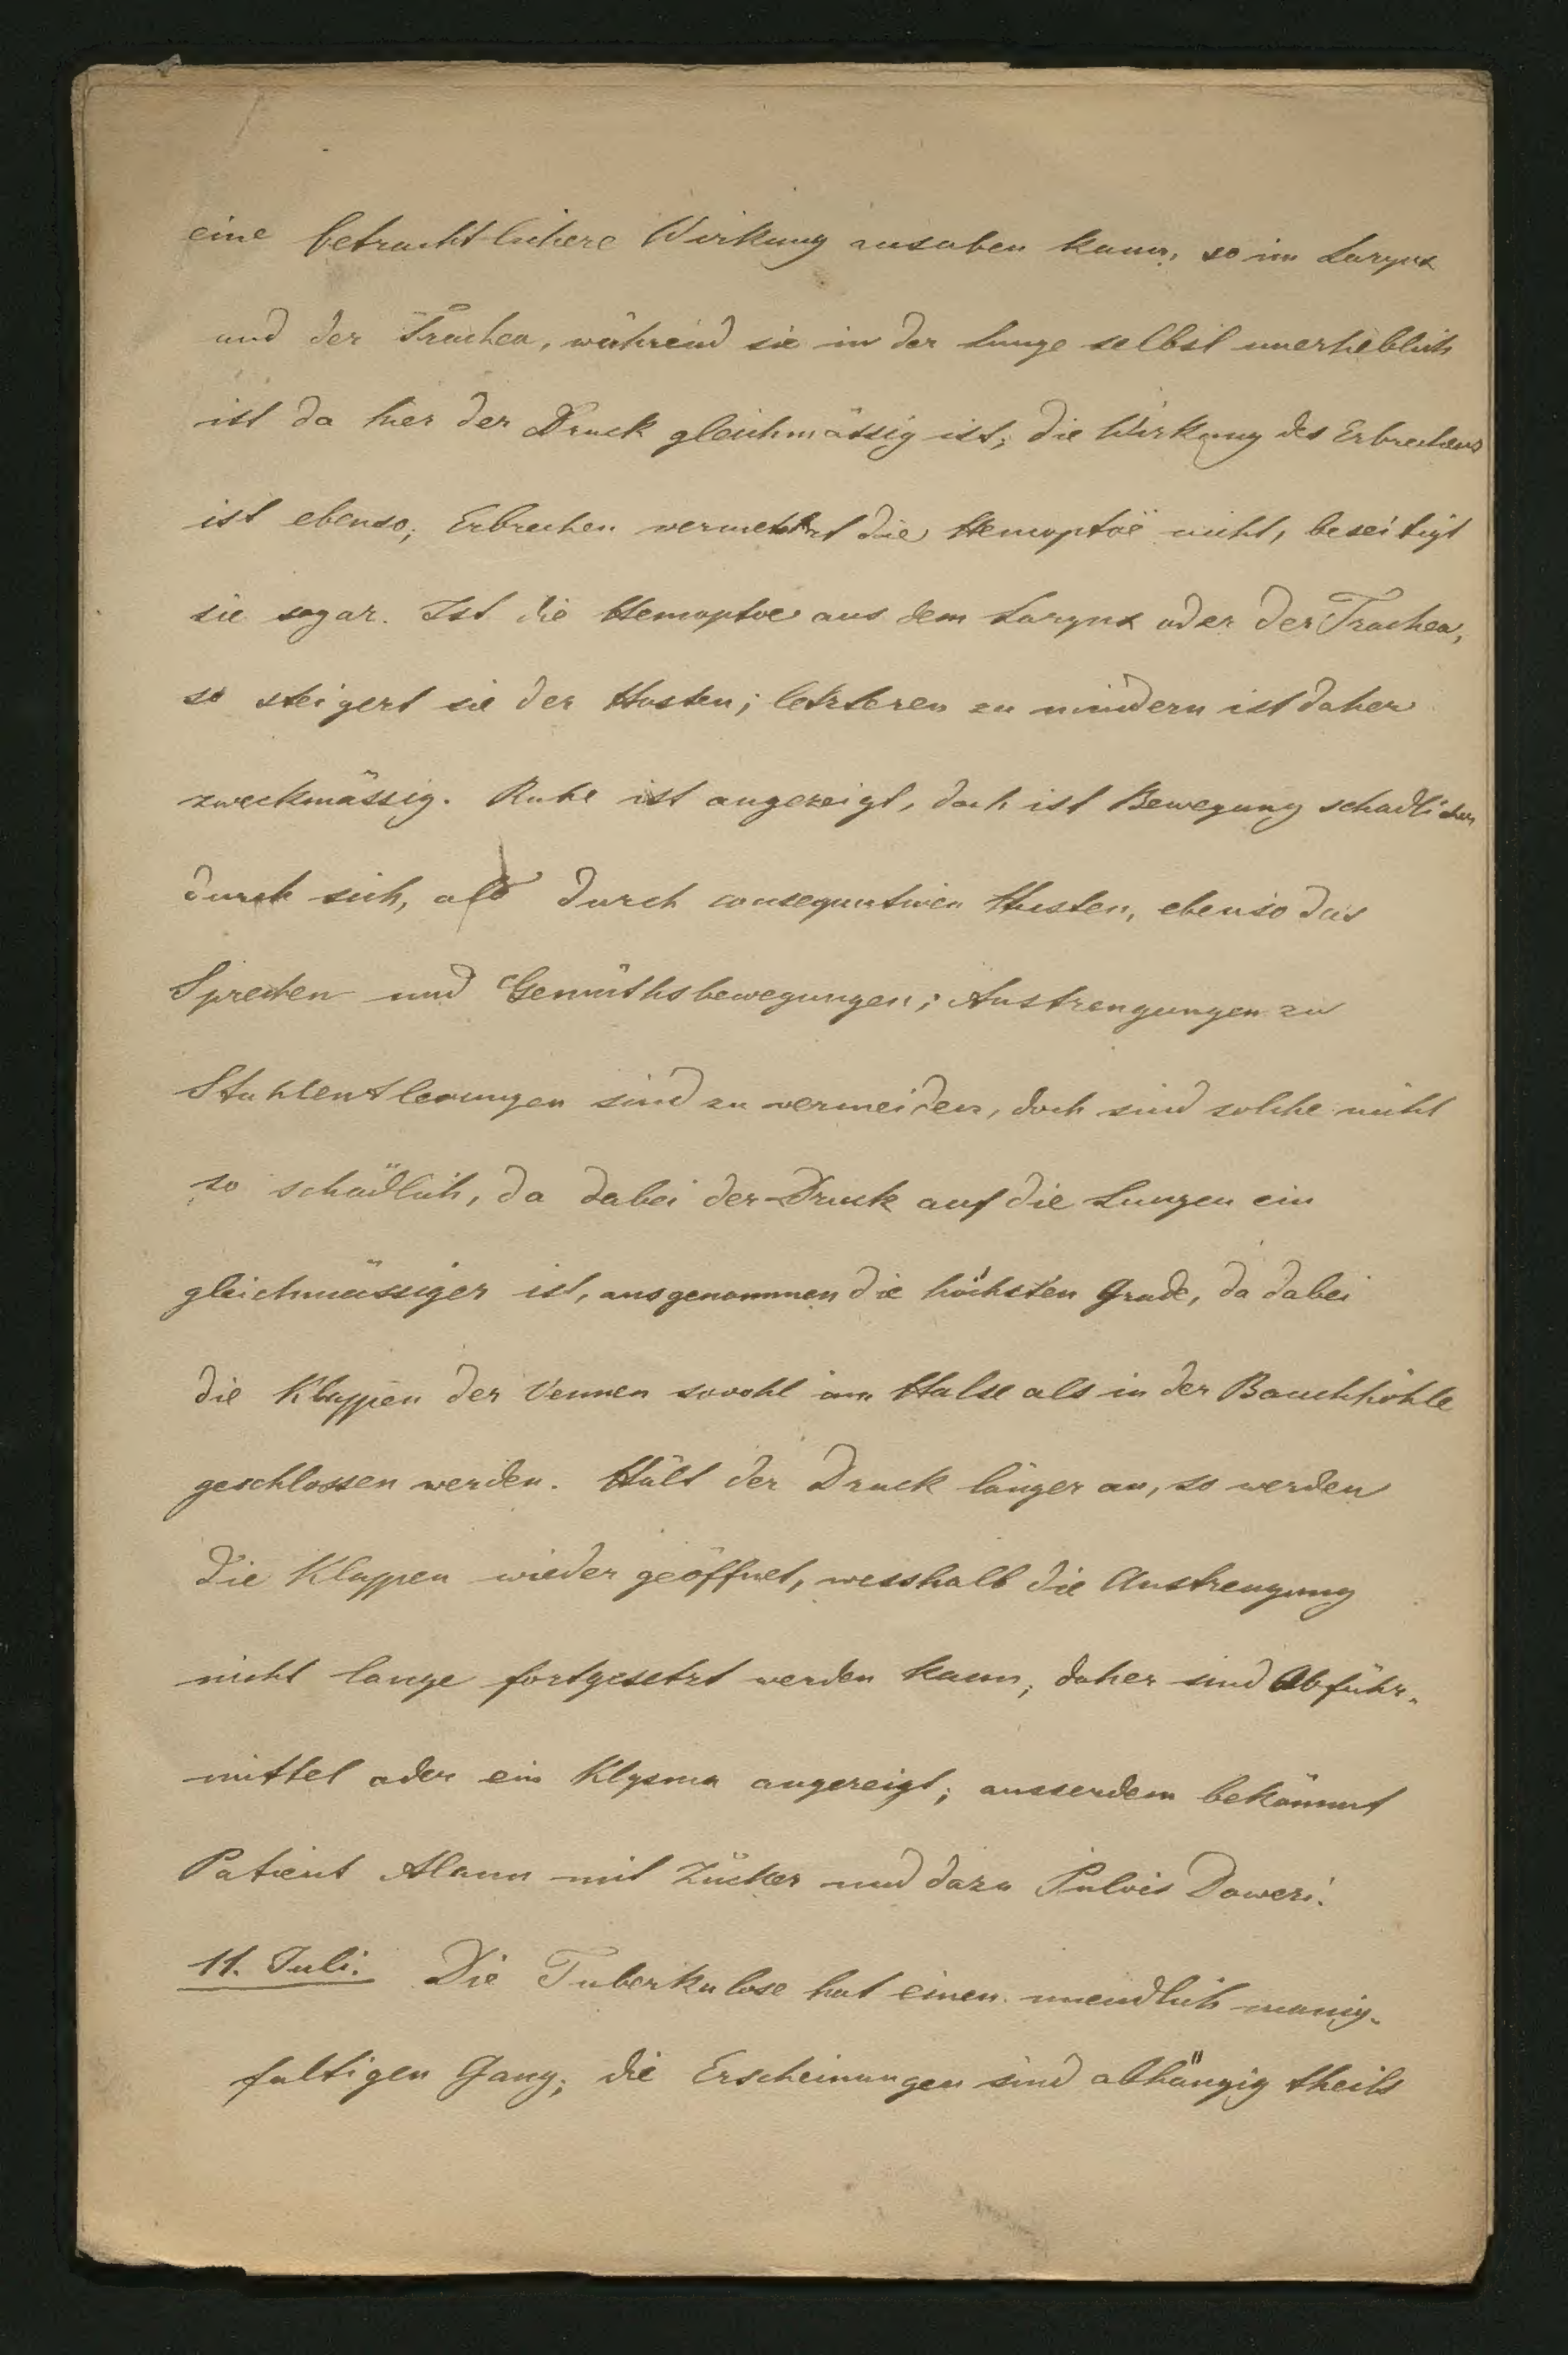 eine betrachtlichere Wirkung ausuben kann, so im Larynx
und der Trachea, während sie in der Lunge selbst unerheblich
ist da hier der Druck gleichmässig ist; die Wirkung des Erbrechens
ist ebenso; Erbrechen vermehrt die Hemoptoë nicht, beseitigt
sie sogar. Ist die Hemoptoe aus dem Larynx oder der Trachea,
so steigert sie der Husten; letzteren zu mindern ist daher
zweckmässig. Ruhe ist angezeigt, doch ist Bewegung schadlicher
durch sich, als durch consequutiven Husten, ebenso das
Sprechen und Gemüthsbewegungen; Anstrengungen zu
Stuhlentleerungen sind zu vermeiden, doch sind solche nicht
so schädlich, da dabei der Druck auf die Lungen ein
gleichmässiger ist, ausgenommen die höchsten Grade, da dabei
die Klappen der Vennen sowohl am Halse als in der Bauchhöhle
geschlossen werden. Hält der Druck länger an, so werden
die Klappen wieder geöffnet, wesshalb die Anstrengung
nicht lange fortgesetzt werden kann; daher sind Abführ-
mittel oder ein Klysma angezeigt; ausserdem bekömmt
Patient Alaun mit Zucker und dazu Pulvis Doweri.
11. Juli. Die Tuberkulose hat einen unendlich manig-
faltigen Gang; die Erscheinungen sind abhängig theils